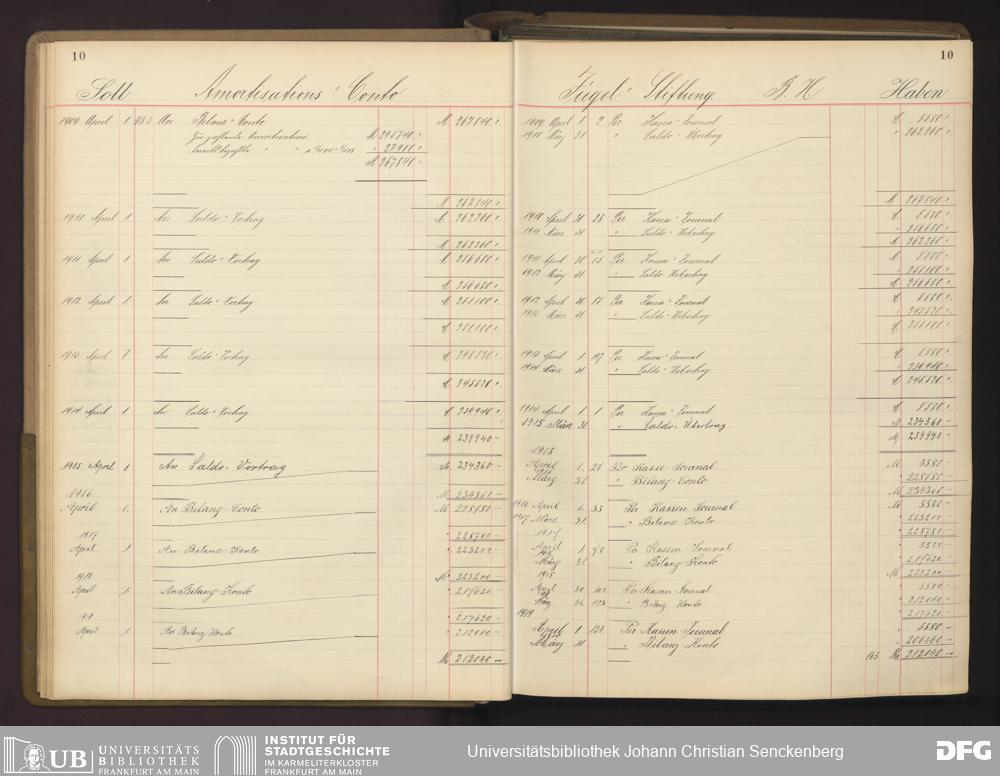 10
Soll Amortisations-Conto
1909 April 1 An Bilanz-Conto M 267840
Zu zahlende Amortisation M 295740
bereits bezahlte 27900
M 267840
M 267840
1910 April 1 An Saldo-Vortrag M 262260
M 262260
1911 April 1 An Saldo-Vortrag M 256680
M 256680
1912 April 1 An Saldo-Vortrag M 251100
M 251100
1913 April 1 An Saldo-Vortrag M 245520
M 245520
1914 April 1 An Saldo-Vortrag M 239940
M 239940 -
1915 April 1 An Saldo-Vortrag M. 234360 -
1916 M. 234360 -
April 1. An Bilanz-Conto M 228780 -
1917 " 228780 -
April 1 An Bilanz-Konto " 223200 -
1918 M 223200 -
April 1 An Bilanz-Konto " 217620 -
1919 " 217620 -
April 1 An Bilanz-Konto " 212040 -
M. 212040 -
10
Fügel Stiftung B. H Haben
1909 April 1 2 Per Kassa-Journal M 5580
1910 März 31 " Saldo-Übertrag " 262260
M 267840
1910 April 28 Per Kassa-Journal M 5580
1911 März 31 " Saldo-Uebertrag " 256680
M 262260
1911 April 55 Per Kassa-Journal M 5580
1912 März 31 " Saldo-Uebertrag " 251100
M 256680
1912 April Per Kassa-Journal M 5580
1913 März 31 " Saldo-Uebertrag " 245520
M 251100
1913 April 1 117 Per Kassa-Journal M 5580
1914 März 31 " Saldo-Uebertrag " 239940
M 245520
1914 April 1 1 Per Kassa-Journal M 5580
1915 März 31 " Saldo-Übertrag M. 234360 -
M. 239940 -
1915
April 1. 28 Per Kasse-Journal M. 5580 -
März 31. " Bilanz-Conto " 228780 -
M. 234360 -
1916 April 1. 53 Per Kassen Journal M. 5580 -
1917 März 31. " Bilanz Konto " 223200 -
1917 " 228780 -
April 1 78 Per Kassen-Journal 5580 -
1918
März 31. " Bilanz Konto " 217620 -
1918 M. 223200 -
April 30 103 Per Kassen Journal 5580 -
März 31. 123 " Bilanz Konto " 212040 -
1919 " 217620 -
April 1 124 Per Kassen-Journal 5580 -
März 31 " Bilanz-Konto " 206460 -
165 M. 212040 -
UB UNIVERSITÄTS
BIBLIOTHEK
FRANKFURT AM MAIN
INSTITUT FÜR
STADTGESCHICHTE
IM KARMELITERKLOSTER
FRANKFURT AM MAIN
Universitätsbibliothek Johann Christian Senckenberg
DFG